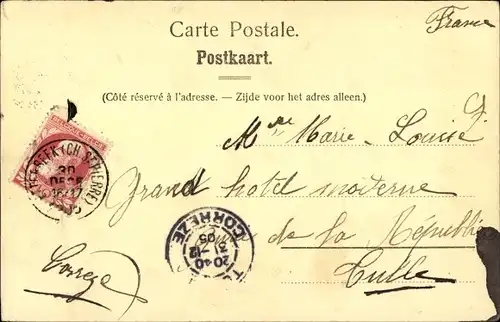 France
Carte Postale.
Postkaart.
(Côté réservé à l'adresse. — Zijde voor het adres alleen.)
Mlle Marie-Louise
Grand hotel moderne
de la République
Tulle
Corrèze
30
DEC
CORREZE
20 40
05